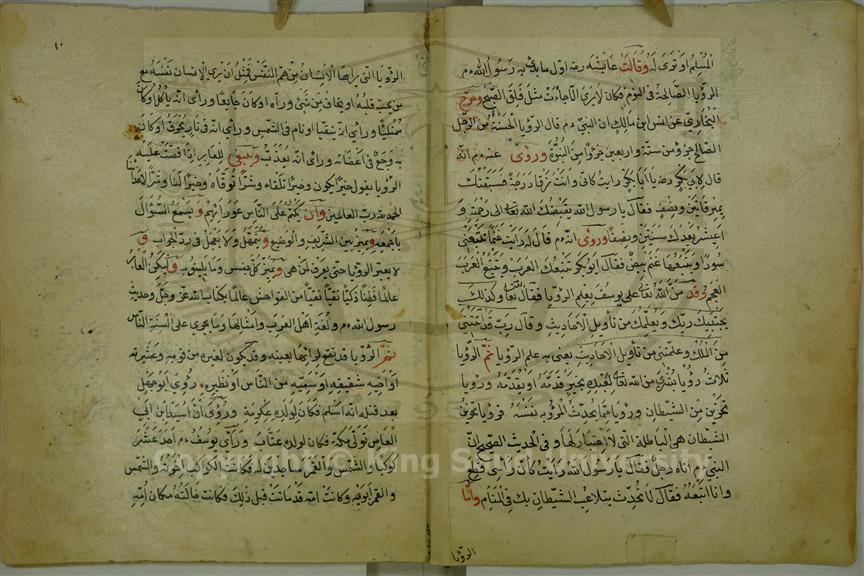 المسلم او ترى له وقالت عائشة رضه اول ما بدئ به رسول الله ءم
الرؤيا الصالحة في النوم فكان لا يرى الا جاءت مثل فلق الصبح وخرج
البخارى عن انس ابن مالك ان النبي ءم قال الرؤيا الحسنة من الرجل
الصالح جزؤ من ستة واربعين جزؤا من النبوة وروى عنه ءم انه
قال لابي بكر رضه يا ابا بكر رايت كاني وانت نرقا درجة فسبقتك
بمرقاتين ونصف فقال يا رسول الله يقبضك الله تعالى الى رحمته و
اعيش بعدك سنتين ونصفا وروى انه ءم قال له رايت غنما تتبعني
سودا وتتبعها غنم بيض فقال ابو بكر تتبعك العرب وتتبع العرب
العجم وقد من الله تعالى على يوسف بعلم الرؤيا فقال تعالى وكذلك
يجتبيك ربك ويعلمك من تأويل الاحاديث وقال رب قد اتيتني
من الملك وعلمتني من تأويل الاحاديث يعني به علم الرؤيا ثم الرؤيا
ثلاث رؤيا بشرى من الله تعالى للعبد بخير قدمه او يقدمه ورؤيا
تحزين من الشيطان ورؤيا مما يحدث المرؤ به نفسه فرؤيا تحزين
الشيطان هي الباطلة التي لا اعتبار لها وفي الحديث الصحيح ان
النبي ءم اتاه رجل فقال يا رسول الله رايت كان راسي قطع
وانا اتبعه فقال لا تحدث بتلاعب الشيطان بك في المنام واما
الرؤيا
١٠
الرؤيا التي يراها الانسان من هم النفس فمثل ان يرى الانسان نفسه مع
من يحبه قلبه او يخاف من شئ وراه او كان جايعا وراى انه ياكل او كان
ممتلئا وراى انه يتقيا او نام في الشمس وراى انه في نار يحرق او كان
به وجع في اعضائه وراى انه يعذب وينبغي للعابر اذا قصت عليه
الرؤيا يقول خيرا يكون وخيرا تلقاه وشرا توقاه وخيرا لنا وشرا لاعدائنا
الحمد لله رب العالمين وان يكتم على الناس عوراتهم ويسمع السؤال
باجمعه ويميز بين الشريف والوضيع ويتمهل ولا يعجل في رد الجواب و
لا يعبر الرؤيا حتى يعرف لمن هي ويميز كل جنس وما يليق به وليكن العابر
عالما فطنا ذكيا تقيا نقيا من الفواحش عالما بكتاب الله عز وجل وحديث
رسول الله ءم ولغة اهل العرب وامثالها وما يجرى على السنة الناس
ثم الرؤيا قد تقع لرائيها بعينه وقد يكون لغيره من قومه وعشيرته
او اخيه شقيقه او سميه من الناس او نظيره رؤى ابو جهل
بعد قتله انه اسلم فكان لولده عكرمة ورؤى ان اسيد ابن ابي
العاص تولى مكة فكان لولده عتاب وراى يوسف ءم احد عشر
كوكبا والشمس والقمر ساجدين له فكانت الكواكب اخوته والشمس
والقمر ابويه وكانت امه قد ماتت قبل ذلك فكانت خالته مكان امه
© King Saud University